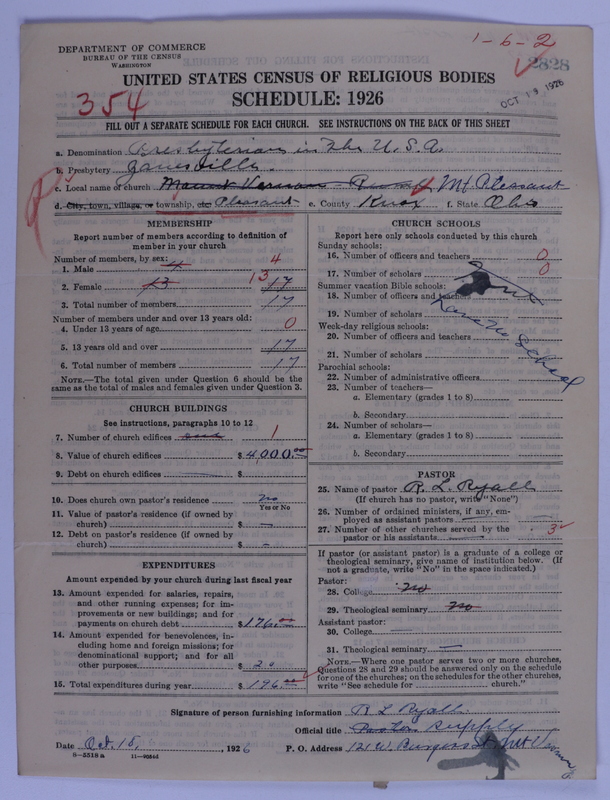 1-6-2
DEPARTMENT OF COMMERCE
BUREAU OF THE CENSUS
WASHINGTON
2828
OCT 19 1926
UNITED STATES CENSUS OF RELIGIOUS BODIES
354
SCHEDULE: 1926
FILL OUT A SEPARATE SCHEDULE FOR EACH CHURCH. SEE INSTRUCTIONS ON THE BACK OF THIS SHEET
a. Denomination Presbyterian in the U.S.A.
b. Presbytery Zanesville.
c. Local name of church Mount Vernon Mt. Pleasant
d. City, town, village, or township, etc. Pleasant e. County Knox f. State Ohio
MEMBERSHIP
Report number of members according to definition of member in your church
Number of members, by sex:
1. Male 4 4
2. Female 13 13 17
3. Total number of members 17
Number of members under and over 13 years old:
4. Under 13 years of age 0
5. 13 years old and over 17
6. Total number of members 17
NOTE.—The total given under Question 6 should be
same as the total of males and females given under Question 3.
CHURCH BUILDINGS
See instructions, paragraphs 10 to 12
7. Number of church edifices one 1
8. Value of church edifices $ 4,000.00
9. Debt on church edifices $
10. Does church own pastor's residence No
Yes or No
11. Value of pastor's residence (if owned by
church) $ —
12. Debt on pastor's residence (if owned by
church) $ —
EXPENDITURES
Amount expended by your church during last fiscal year
13. Amount expended for salaries, repairs,
and other running expenses; for im-
provements or new buildings; and for
payments on church debt $ 176.00
14. Amount expended for benevolences, in-
cluding home and foreign missions; for
denominational support; and for all
other purposes $ 20
15. Total expenditures during year $ 196.00
CHURCH SCHOOLS
Report here only schools conducted by this church
Sunday schools:
16. Number of officers and teachers 0
17. Number of scholars 0
Summer vacation Bible schools:
18. Number of officers and teachers
19. Number of scholars
Week-day religious schools:
20. Number of officers and teachers
21. Number of scholars
have no School
Parochial schools:
22. Number of administrative officers
23. Number of teachers—
a. Elementary (grades 1 to 8)
b. Secondary
24. Number of scholars—
a. Elementary (grades 1 to 8)
b. Secondary
PASTOR
25. Name of pastor R. L. Ryall
(If church has no pastor, write "None")
26. Number of ordained ministers, if any, em-
ployed as assistant pastors —
27. Number of other churches served by the
pastor or his assistants 3
If pastor (or assistant pastor) is a graduate of a college or
theological seminary, give name of institution below. (If
not a graduate, write "No" in the space indicated.)
Pastor:
28. College No
29. Theological seminary No
Assistant pastor:
30. College
31. Theological seminary —
NOTE.—Where one pastor serves two or more churches,
Questions 28 and 29 should be answered only on the schedule
for one of the churches; on the schedules for the other churches,
write "See schedule for church."
Signature of person furnishing information R L Ryall
Official title Pastor Supply
Date Oct. 15, 1926 P. O. Address 121 W. Burgess St Mt Vernon
8—5518 a 11—9054d